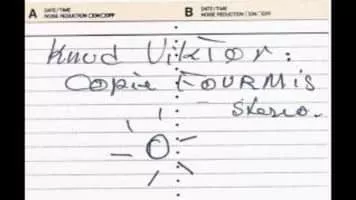 A DATE/TIME NOISE REDUCTION □ON □OFF B DATE/TIME NOISE REDUCTION □ON □OFF
Knud Viktor:
Copie FOURMIS
Stereo.